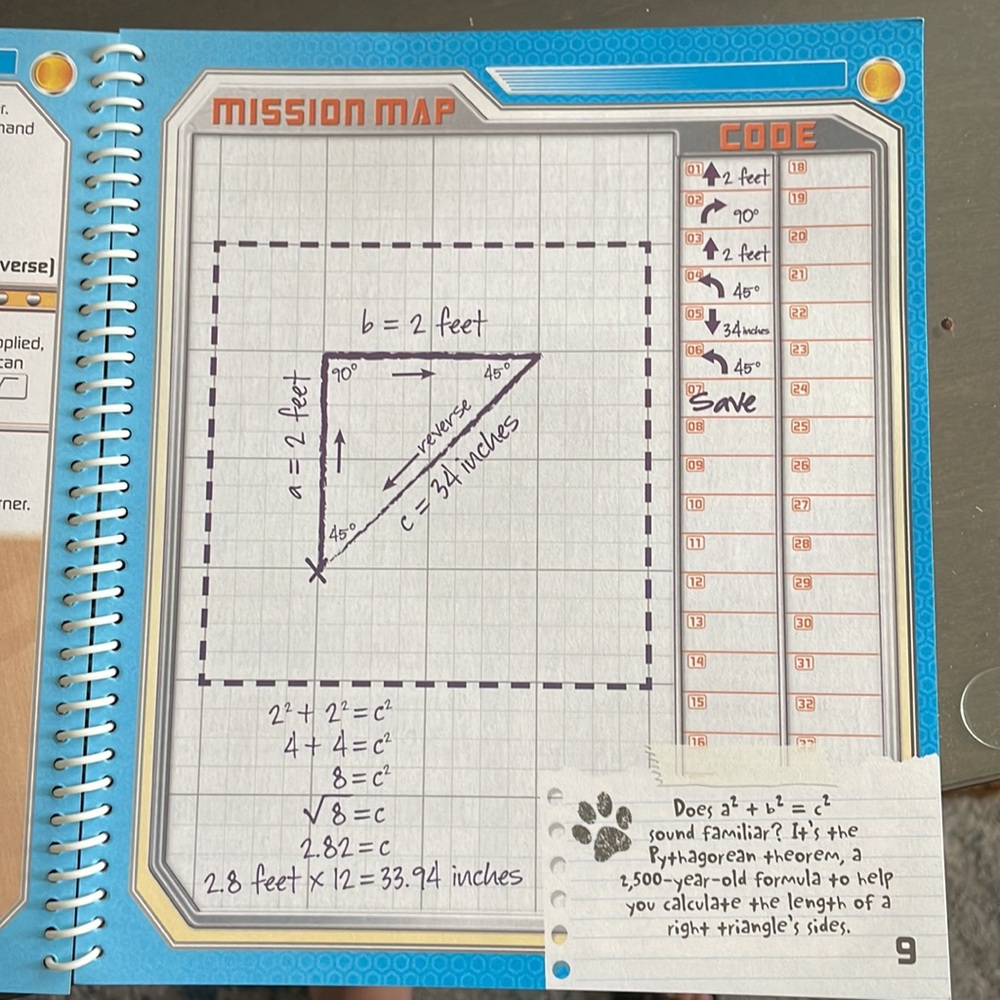 r.
hand
verse)
oplied,
can
rner.
MISSION MAP
CODE
b = 2 feet
90°
45°
a = 2 feet
reverse
c = 34 inches
45°
2² + 2² = c²
4 + 4 = c²
8 = c²
√8 = c
2.82 = c
2.8 feet x 12 = 33.94 inches
01 ↑ 2 feet
02 ↱ 90°
03 ↑ 2 feet
04 ↰ 45°
05 ↓ 34 inches
06 ↰ 45°
07 Save
08
09
10
11
12
13
14
15
16
18
19
20
21
22
23
24
25
26
27
28
29
30
31
32
Does a² + b² = c²
sound familiar? It's the
Pythagorean theorem, a
2,500-year-old formula to help
you calculate the length of a
right triangle's sides.
9